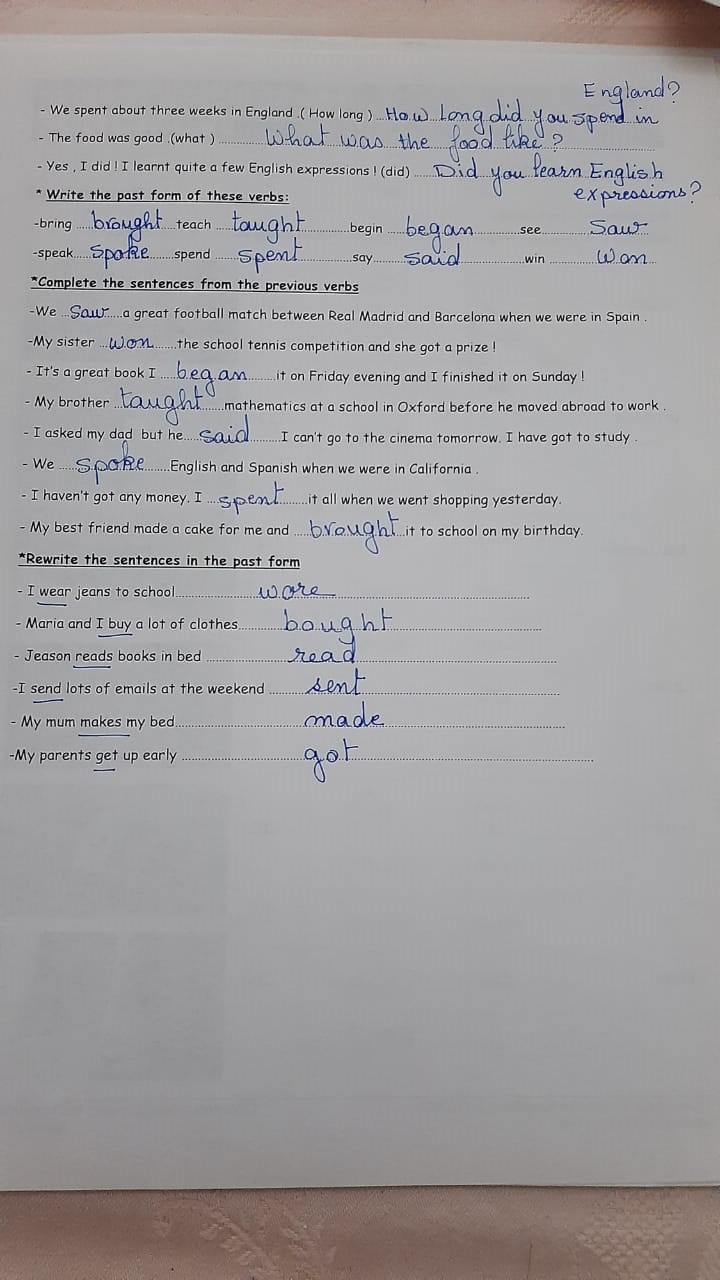 England?
- We spent about three weeks in England .( How long ) How long did you spend in
- The food was good .(what ) What was the food like ?
- Yes , I did ! I learnt quite a few English expressions ! (did) Did you learn English
expressions?
* Write the past form of these verbs:
-bring brought teach taught begin began see saw
-speak spoke spend spent say said win won
*Complete the sentences from the previous verbs
-We saw a great football match between Real Madrid and Barcelona when we were in Spain .
-My sister won the school tennis competition and she got a prize !
- It's a great book I began it on Friday evening and I finished it on Sunday !
- My brother taught mathematics at a school in Oxford before he moved abroad to work .
- I asked my dad but he said I can't go to the cinema tomorrow. I have got to study .
- We spoke English and Spanish when we were in California .
- I haven't got any money. I spent it all when we went shopping yesterday.
- My best friend made a cake for me and brought it to school on my birthday.
*Rewrite the sentences in the past form
- I wear jeans to school wore
- Maria and I buy a lot of clothes bought
- Jeason reads books in bed read
-I send lots of emails at the weekend sent
- My mum makes my bed made
-My parents get up early got